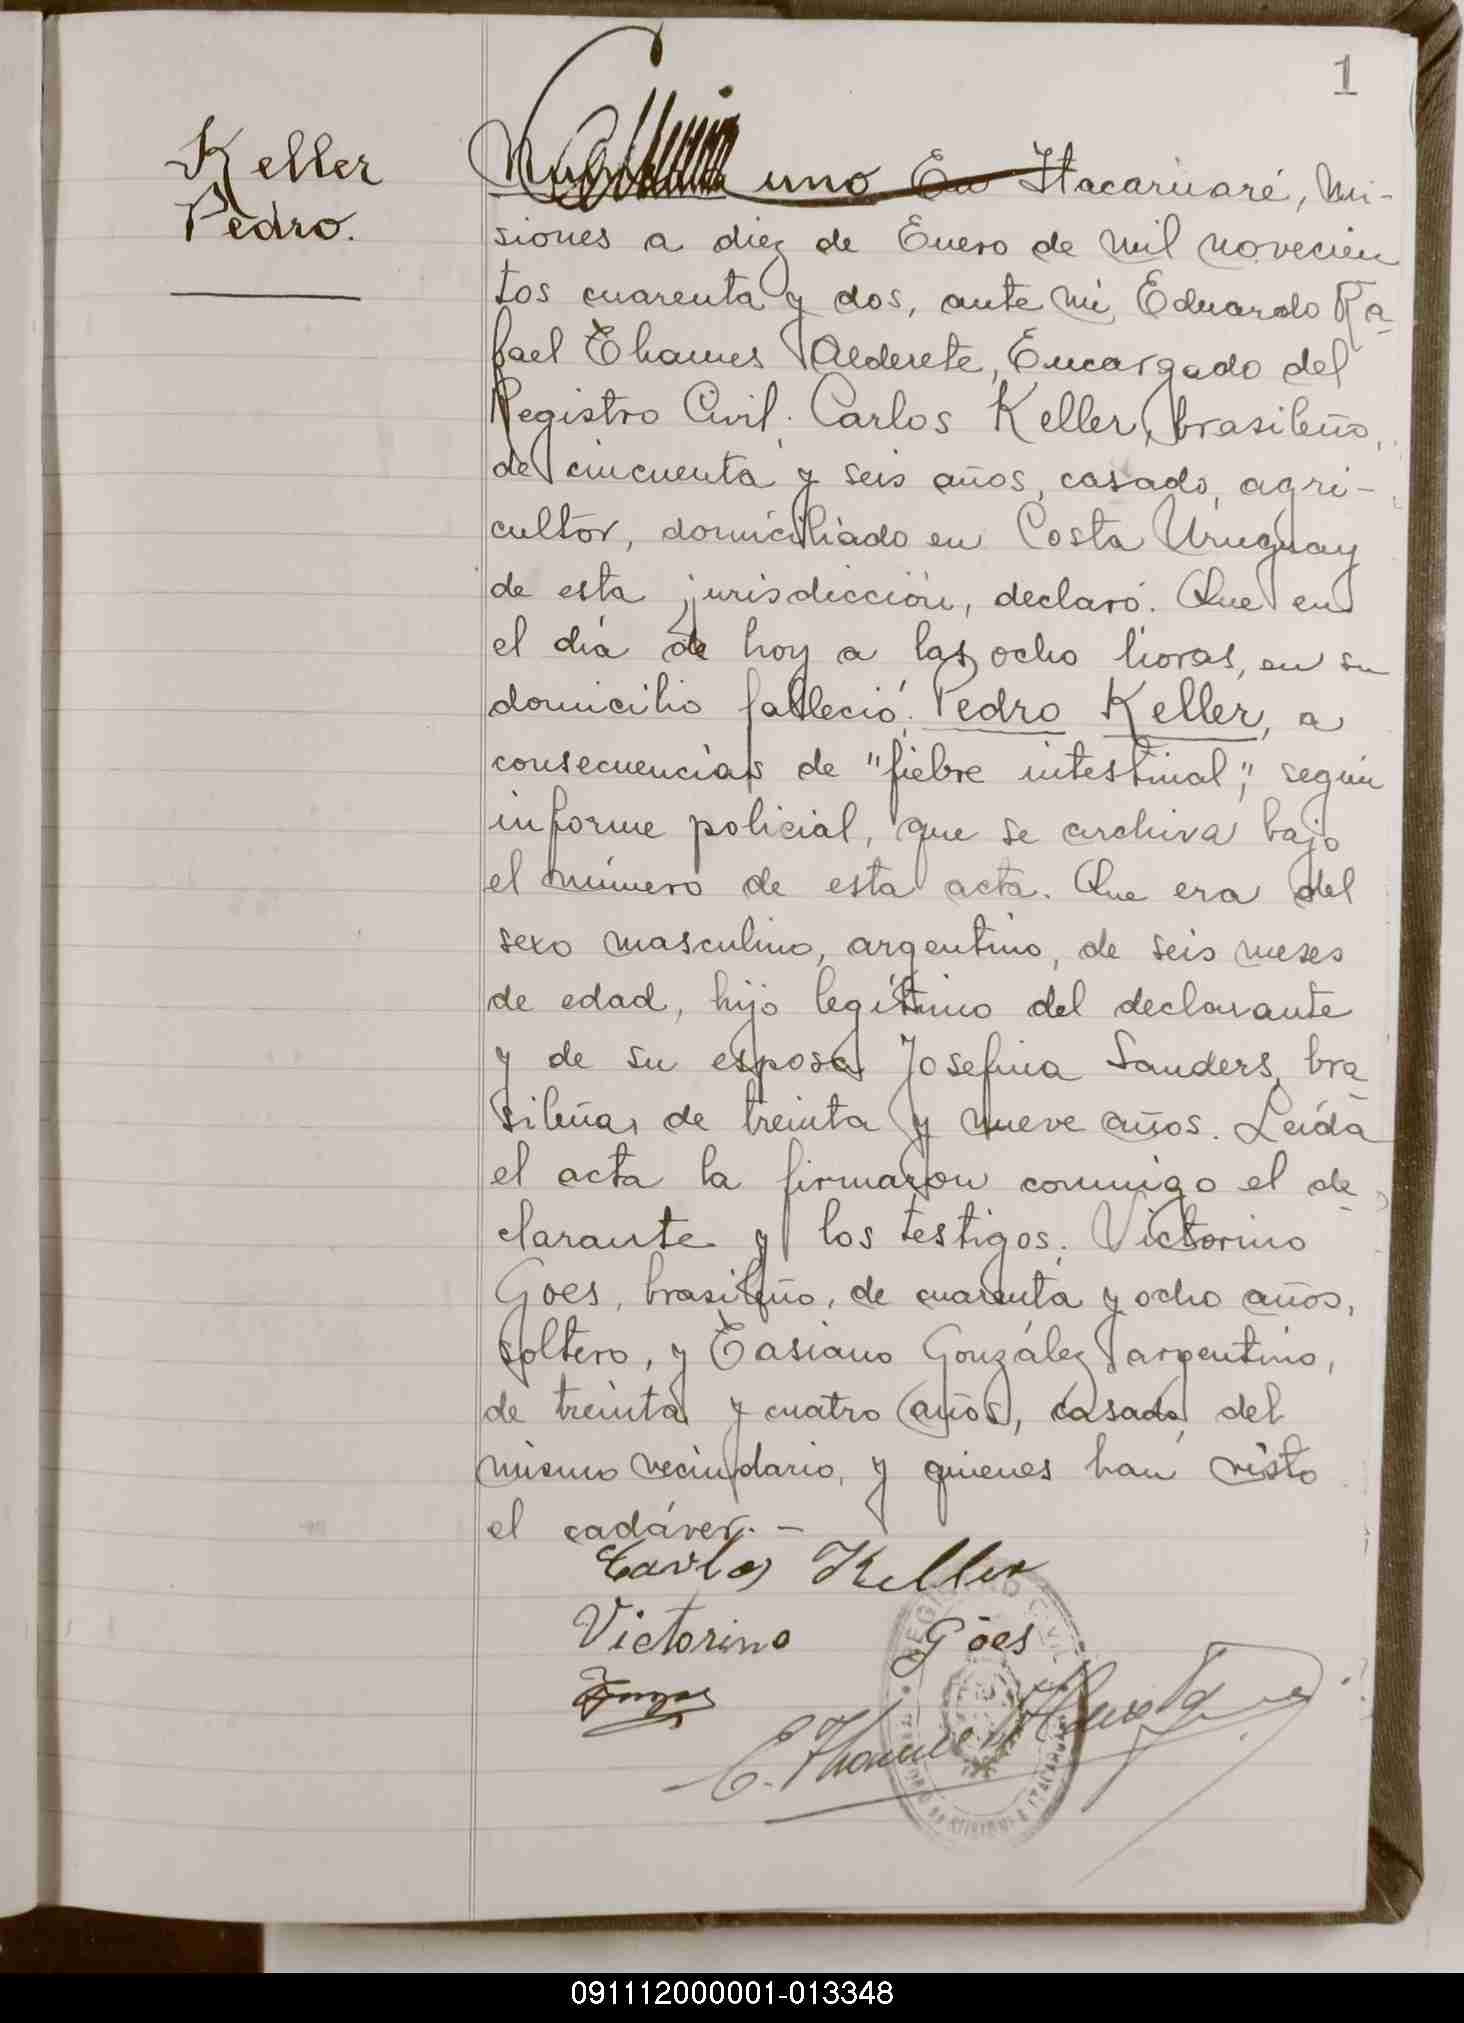 1
Keller
Pedro.
Número uno En Itacaruaré, Mi-
siones a diez de Enero de mil novecien
tos cuarenta y dos, ante mi, Eduardo Ra-
fael Thames Alderete, Encargado del
Registro Civil; Carlos Keller, brasileño,
de cincuenta y seis años, casado, agri-
cultor, domiciliado en Costa Uruguay
de esta jurisdicción, declaró: Que en
el día de hoy a las ocho horas, en su
domicilio falleció: Pedro Keller, a
consecuencias de "fiebre intestinal", según
informe policial, que se archiva bajo
el número de esta acta. Que era del
sexo masculino, argentino, de seis meses
de edad, hijo legítimo del declarante
y de su esposa Josefina Sanders, bra-
sileña, de treinta y nueve años. Leída
el acta la firmaron conmigo el de-
clarante y los testigos: Victorino
Goes, brasileño, de cuarenta y ocho años,
soltero, y Casiano González argentino,
de treinta y cuatro años, casado, del
mismo vecindario, y quienes han visto
el cadáver. -
Carlos Keller
Victorino Góes
E. Thames Alderete
REGISTRO CIVIL
ITACARUARE
091112000001-013348